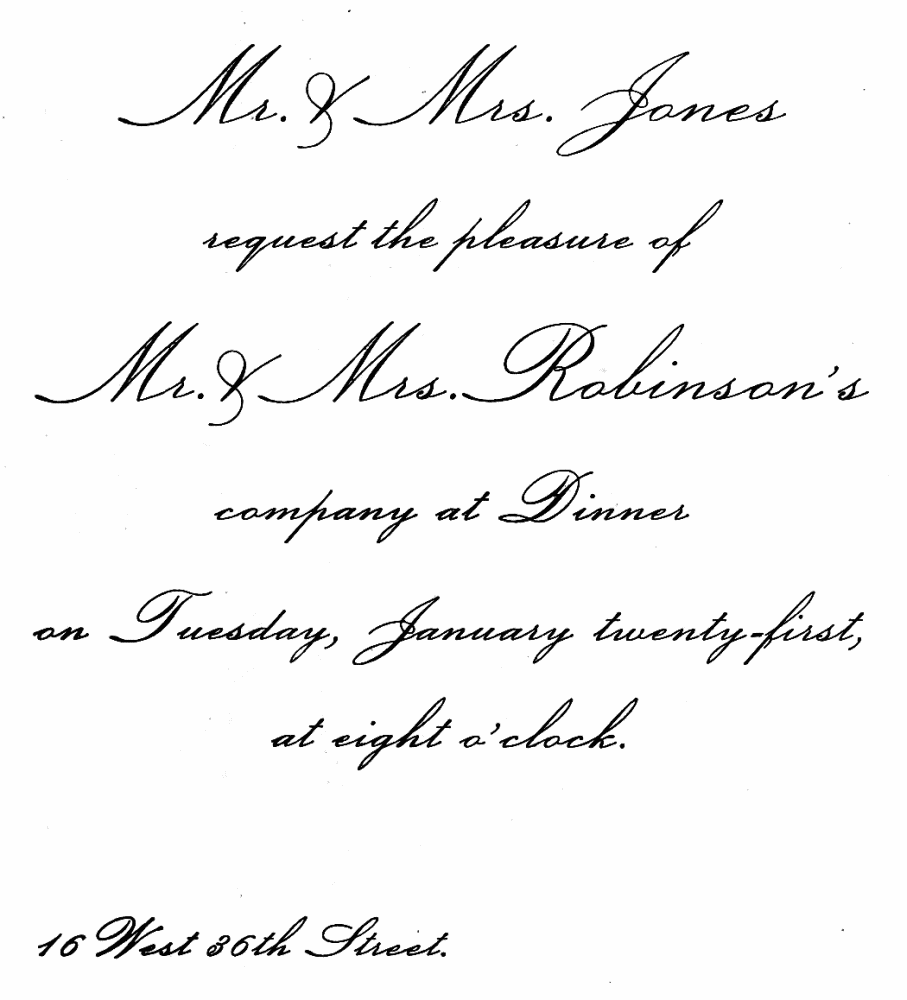 Mr. & Mrs. Jones
request the pleasure of
Mr. & Mrs. Robinson's
company at Dinner
on Tuesday, January twenty-first,
at eight o'clock.
16 West 36th Street.